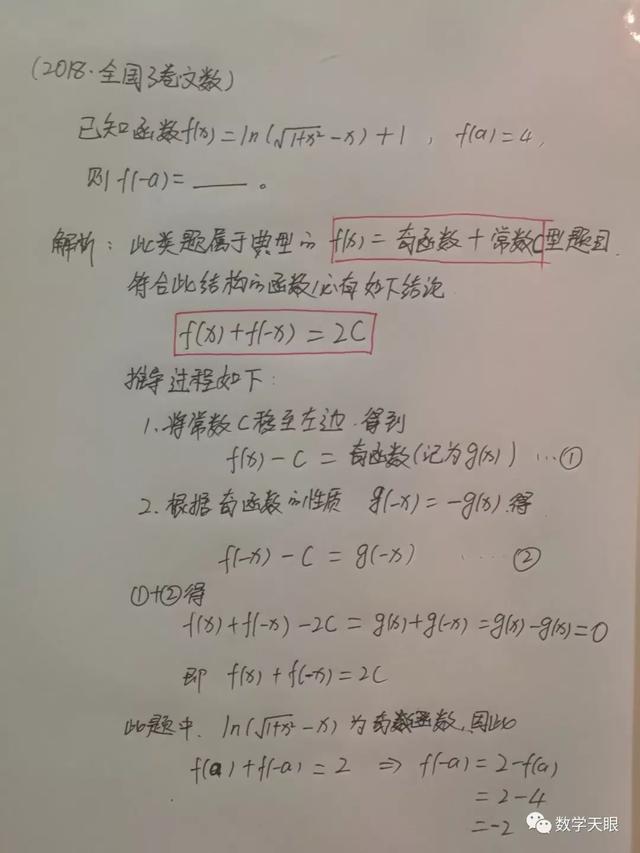 (2018·全国3卷文数)
已知函数f(x)=ln(√1+x²-x)+1, f(a)=4,
则f(-a)=____。
解析：此类题属于典型的 f(x)=奇函数+常数C型题目.
符合此结构的函数必有如下结论
f(x)+f(-x)=2C
推导过程如下：
1、将常数C移至左边.得到
f(x)-C=奇函数(记为g(x)) …①
2、根据奇函数的性质 g(-x)=-g(x).得
f(-x)-C=g(-x) ……②
①+②得
f(x)+f(-x)-2C=g(x)+g(-x)=g(x)-g(x)=0
即 f(x)+f(-x)=2C
此题中. ln(√1+x²-x)为奇数函数,因此
f(a)+f(-a)=2 ⇒ f(-a)=2-f(a)
=2-4
=-2
数学天眼